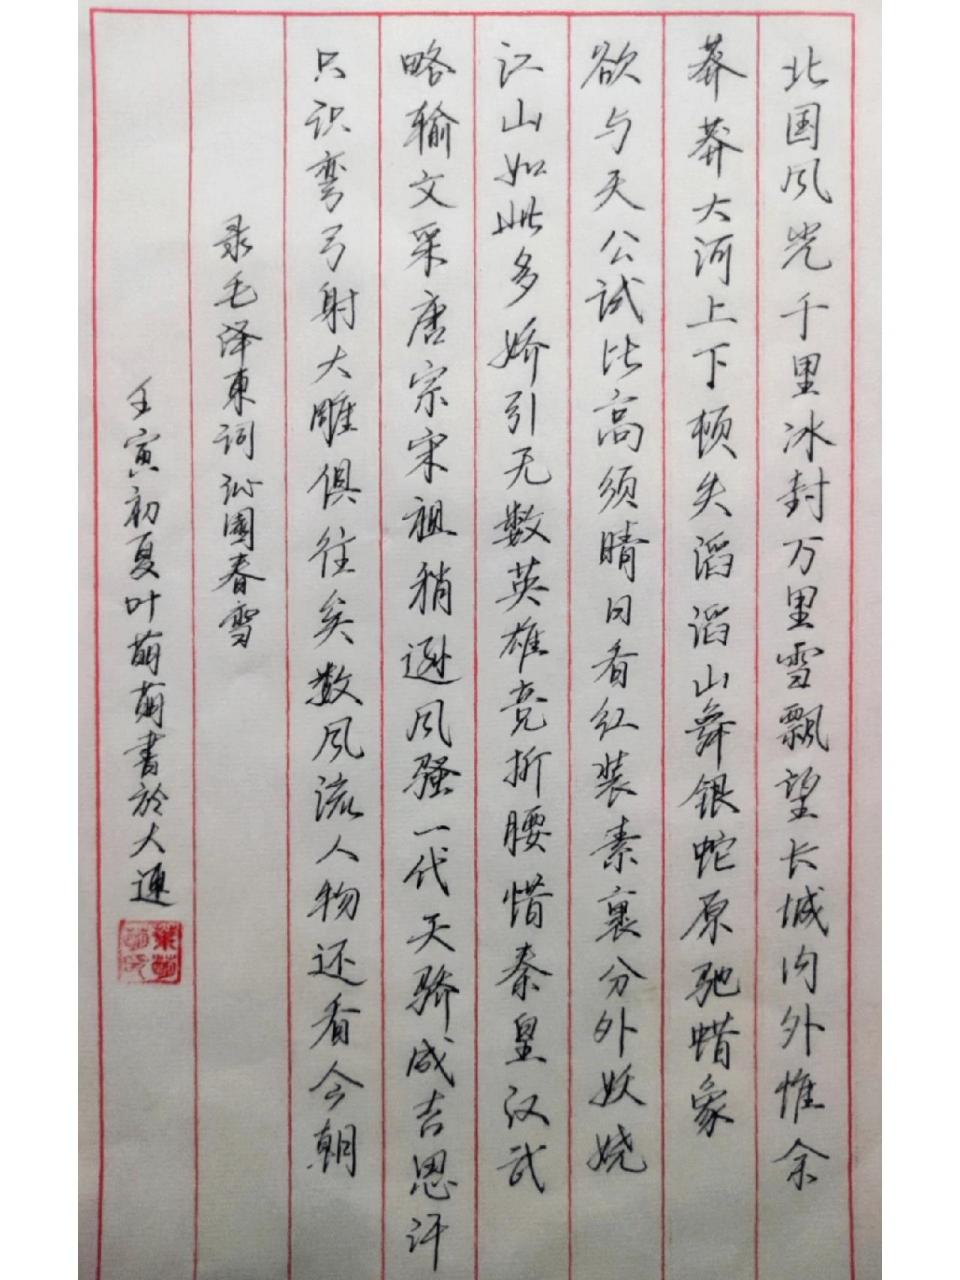 北国风光千里冰封万里雪飘望长城内外惟余
莽莽大河上下顿失滔滔山舞银蛇原驰蜡象
欲与天公试比高须晴日看红装素裹分外妖娆
江山如此多娇引无数英雄竞折腰惜秦皇汉武
略输文采唐宗宋祖稍逊风骚一代天骄成吉思汗
只识弯弓射大雕俱往矣数风流人物还看今朝
录毛泽东词沁園春雪
壬寅初夏叶萌萌書於大連